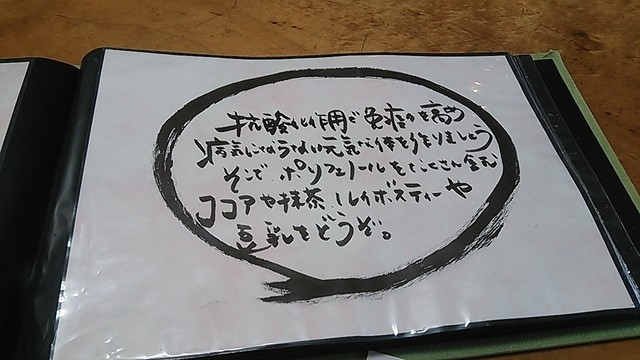 抗酸化作用で免疫力を高め
病気にならない元気な体を作りましょう
そこで ポリフェノールをたくさん含む
ココアや抹茶、ルイボスティーや
豆乳をどうぞ。